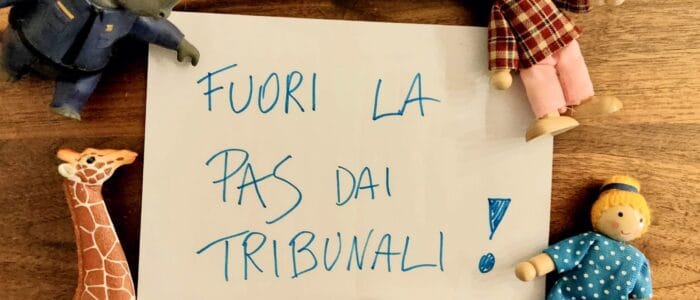 FUORI LA
PAS DAI
TRIBUNALI !